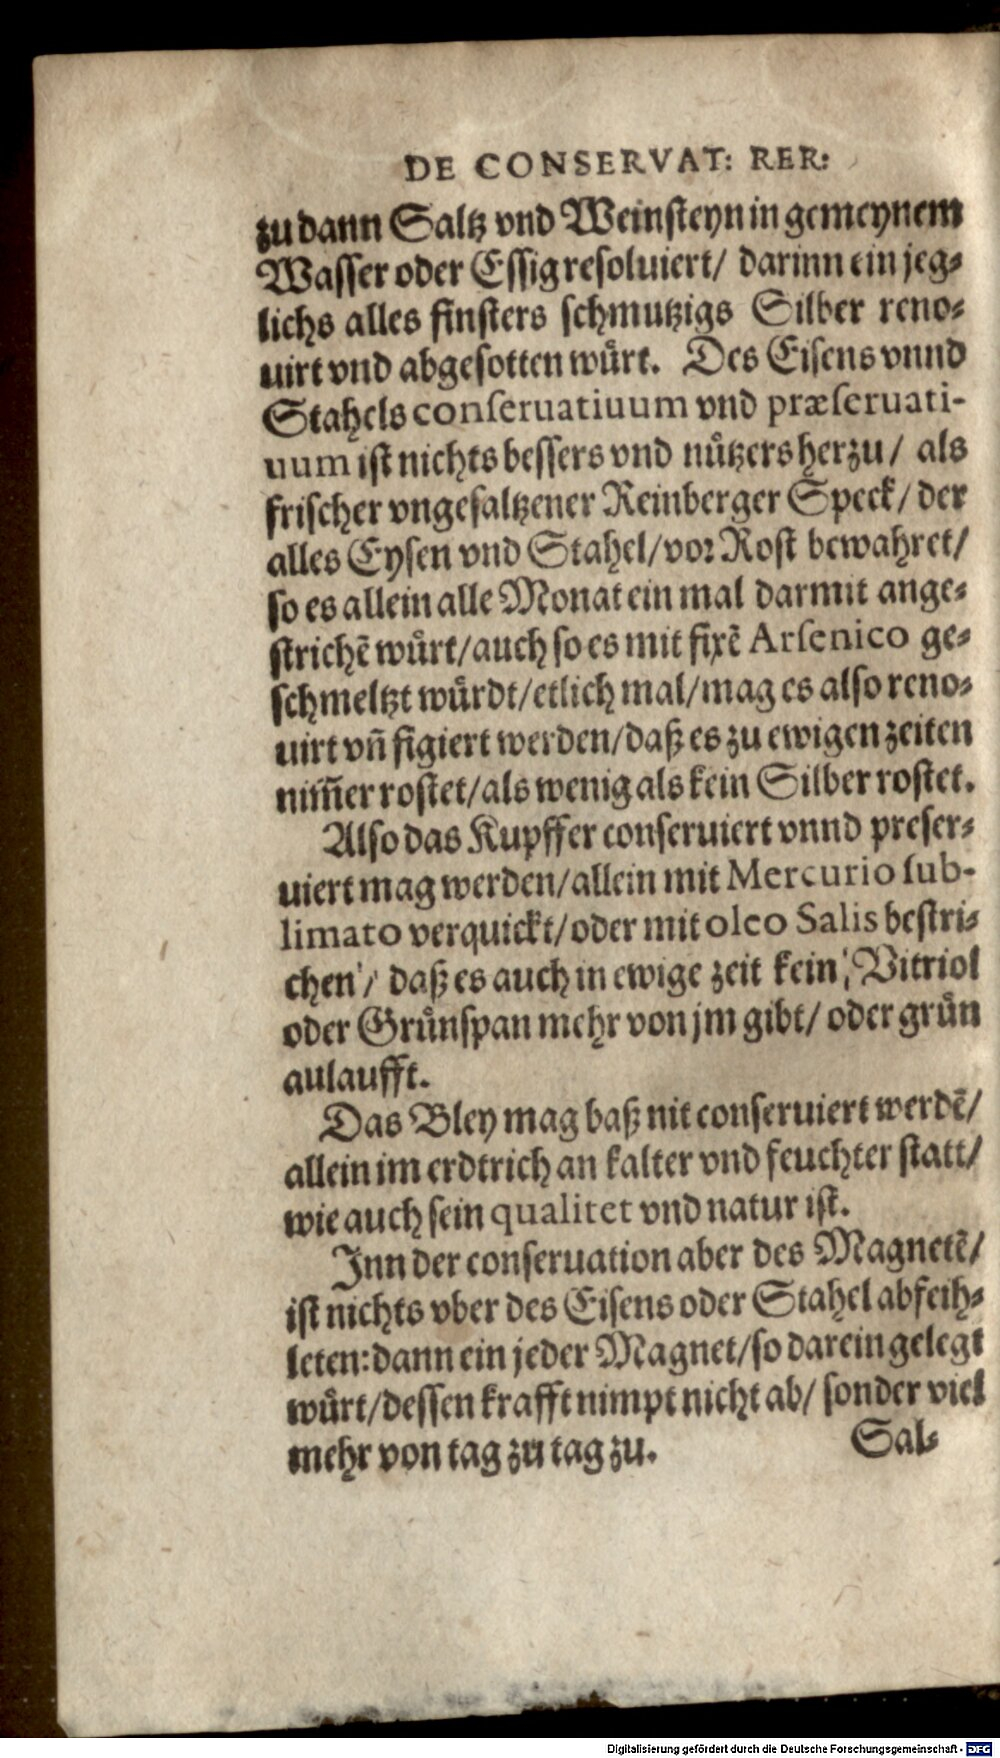 DE CONSERVAT: RER:
zu dann Saltz vnd Weinsteyn in gemeynem
Wasser oder Essig resoluiert/ darinn ein jeg-
lichs alles finsters schmutzigs Silber reno-
uirt vnd abgesotten wuͤrt. Des Eisens vnnd
Stahels conseruatiuum vnd præseruati-
uum ist nichts bessers vnd nuͤtzers herzu/ als
frischer vngesaltzener Reinberger Speck/ der
alles Eysen vnd Stahel/ vor Rost bewahret/
so es allein alle Monat ein mal darmit ange-
strichẽ wuͤrt/ auch so es mit fixẽ Arsenico ge-
schmeltzt wuͤrdt/ etlich mal/ mag es also reno-
uirt vñ figiert werden/ daß es zu ewigen zeiten
nim̃er rostet/ als wenig als kein Silber rostet.
Also das Kupffer conseruiert vnnd preser-
uiert mag werden/ allein mit Mercurio sub-
limato verquickt/ oder mit oleo Salis bestri-
chen/ daß es auch in ewige zeit kein Vitriol
oder Gruͤnspan mehr von jm gibt/ oder gruͤn
aulaufft.
Das Bley mag baß nit conseruiert werdẽ/
allein im erdtrich an kalter vnd feuchter statt/
wie auch sein qualitet vnd natur ist.
Jnn der conseruation aber des Magnetẽ/
ist nichts vber des Eisens oder Stahel abfeih-
leten: dann ein jeder Magnet/ so darein gelegt
wuͤrt/ dessen krafft nimpt nicht ab/ sonder viel
mehr von tag zu tag zu.
Sal-
Digitalisierung gefördert durch die Deutsche Forschungsgemeinschaft - DFG